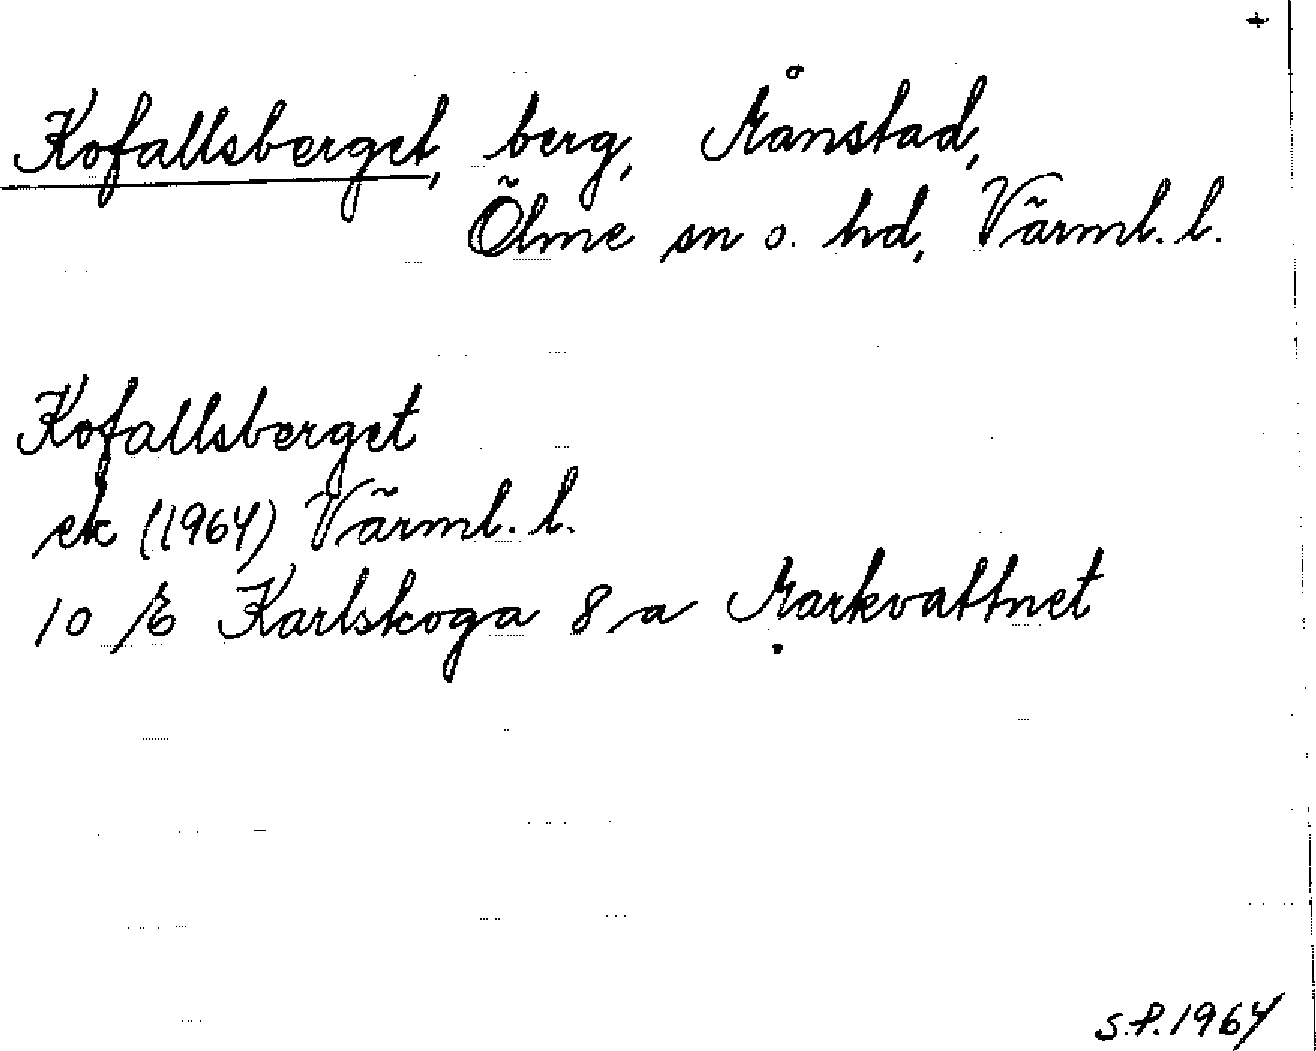 +
Kofallsberget, berg, Månstad,
Ölme sn o. hd, Värml. l.
Kofallsberget
ek (1964) Värml. l.
10 E Karlskoga 8 a Markvattnet
S.P. 1964